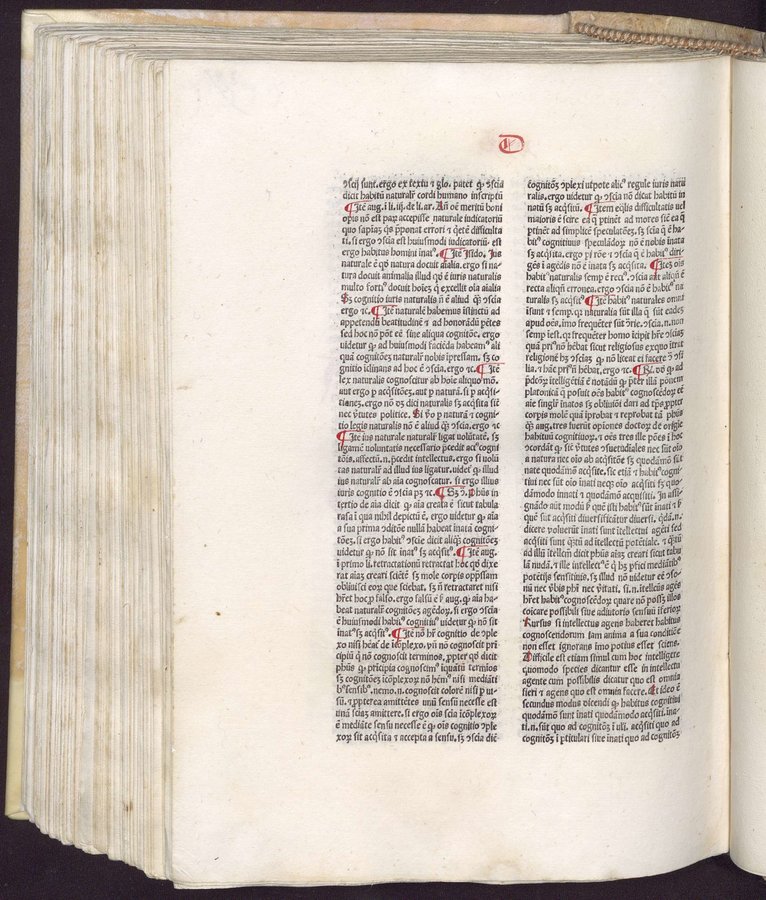 D
ↄscij sunt. ergo ex textu ⁊ glo. patet ꝙ ↄscia
dicit habitū naturalē cordi humano inscriptū
¶ Itē aug. i li. iij. de li. ar. An̄ oē meritū boni
opis nō est par accepisse naturale iudicatoriū
quo sapiaʒ q̄s p̄ponat errori ⁊ q̄etē difficulta
ti. si ergo ↄscia est huiusmodi iudicatoriū. est
ergo habitus homini inatꝰ. ¶ Itē Isido. Jus
naturale ē qd̓ natura docuit aīalia. ergo si na
tura docuit animalia illud qd̓ ē iuris naturalis
multo fortiꝰ docuit hoīeʒ q̇ excellit oīa aīalia
Sʒ cognitio iuris naturalis n̄ ē aliud q̄ȝ ↄscia
ergo ⁊c. ¶ Itē naturale habemus īstinctū ad
appetendū beatitudinē ⁊ ad honorādū pētes
sed hoc nō pōt eē sine aliqua cognitiōe. ergo
uidetur ꝙ ad huiusmodi faciēda habeamꝰ ali
quā cognitōeʒ naturalē nobis īpressam. sʒ co
gnitio īclinans ad hoc ē ↄscia. ergo ⁊c. ¶ Itē
lex naturalis cognoscitur ab hoīe aliquo mō.
aut ergo p acq̇sitōeʒ. aut p naturā. si p acq̇si-
tioneʒ. ergo nō dʒ dici naturalis sʒ acq̇sita sic
nec v̓tutes politice. Si v̓o p naturā ⁊ cogni-
tio legis naturalis nō ē aliud q̄ȝ ↄscia. ergo ⁊c
¶ Itē ius naturale naturalr̄ ligat uolūtatē. sʒ
ligamē uoluntatis necessario p̄cedit actꝰ cogni
tōis. affectū. n. p̄cedit intellectus. ergo si uolū
tas naturalr̄ ad illud ius ligatur. uidet̄ ꝙ illud
ius naturalr̄ ab aīa cognoscatur. si ergo illius
iuris cognitio ē ↄscia pʒ ⁊c. ¶ Sʒ ↄ. Phūs in
tertio de aīa dicit ꝙ aīa creata ē sicut tabula
rasa ī qua nihil depictū ē. ergo uidetur ꝙ aīa
a sua prima ↄditiōe nullā habeat inatā cogni-
tōeʒ. si ergo habitꝰ ↄscīe dicit aliq̄ȝ cognitōeʒ
uidetur ꝙ nō sit inatꝰ sʒ acq̇sitꝰ. ¶ Itē aug.
ī primo li. retractationū retractat hoc qd̓ dixe
rat aīaʒ creari scietē sʒ mole corpis opp̄ssam
obliuisci eorʒ que sciebat. sʒ n̄ retractaret nisi
hr̄et hoc p falso. ergo falsū ē ꝙ aīa ha-
beat naturalē cognitōeʒ agēdoꝝ. si ergo ↄscia
ē huiusmodi habitꝰ cognitiuꝰ uidetur ꝙ nō sit
inatꝰ sʒ acq̇sitꝰ. ¶ Itē nō hr̄ cognitio de ↄple-
xo nisi hēat̄ de īcōplexo. vn̄ nō cognoscit pri
cipiū q̇ nō cognoscit terminos. ꝓpter qd̓ dicit
phūs ꝙ prīcipia cognoscimꝰ iquātū termios
sʒ cognitōeʒ īcōplexoꝝ nō hēmꝰ nisi mediāti
bꝰ sensibꝰ. nemo. n. cognoscit colorē nisi p ui-
sū. ⁊ ꝓpterea amittētes unū sensū necesse est
unā sciāʒ amittere. si ergo oīs scīa īcōplexoꝝ
ē mediāte sensu necesse ē ꝙ oīs cognitio ↄple
xoꝝ sit acq̇sita ⁊ accepta a sensu. sʒ ↄscia dicit
cognitōeʒ ↄplexi utpote alicꝰ regule iuris natu
ralis. ergo uidetur ꝙ ↄscia nō dicat habitū in
natū sʒ acq̇sitū. ¶ Item eq̄lis difficultatis uel
maioris ē scire ea q̄ ptinēt ad mores sic ea q̄
ptinēt ad simplicē speculatōeʒ. sʒ scīa q̄ ē ha-
bitꝰ cognitiuus speculādoꝝ nō ē nobis inata
sʒ acq̇sita. ergo pi rōe ⁊ ↄscia q̄ ē habitꝰ diri-
gēs ī agēdis nō ē inata sʒ acq̇sita. ¶ Iteʒ oīs
habitꝰ naturalis semp ē rectꝰ. ↄscia aūt aliq̄n̄ ē
recta aliq̄n̄ erronea. ergo ↄscia nō ē habitꝰ na
turalis sʒ acq̇sitꝰ ¶ Itē habitꝰ naturales omni
īsunt ⁊ semp. q: naturalia sūt illa q̄ sūt eadeʒ
apud oēs. imo frequēter sūt ↄrie. ↄscia. n. non
semp īest. q: frequēter homo īcipit hr̄e ↄscieʒ
quā priꝰ nō hēbat sicut religiosus exquo ītrat
religionē hʒ ↄsciaʒ ꝙ nō liceat ei facere ↄ̄ ↄsi
lia. ⁊ hāc priꝰ n̄ hēbat. ergo ⁊c. ¶ Rn̄. ꝙ ad
p̄dcōꝝ ītelligētiā ē notādū ꝙ p̄ter illā ponem
platonicā q̄ posuit oēs habitꝰ cognoscēdoꝝ eē
aīe singlīr inatos sʒ obliuiōi dari ad tp̄s ꝓpter
corpis molē quā īprobat ⁊ reprobat tā phūs
q̄ȝ aug. tres fuerūt opiniones doctoꝝ de origīe
habituū cognitiuoꝝ. ⁊ oēs tres ille pōnes ī hoc
ↄcordāt ꝙ sic v̓tutes ↄsuetudiales nec sūt oīo
a natura nec oīo ab acq̇sitōe sʒ quodāmō sūt
nate quodāmō acq̇site, sic etiā ⁊ habitꝰ cogni-
tiui nec sūt oīo inati neqʒ oīo acq̇siti sʒ quo-
dāmodo innati ⁊ quodāmō acquisiti. In assi-
gnādo aūt modū ꝙ quē isti habitꝰ sūt inati ⁊ ꝙ
quē sūt acq̇siti diuersificātur diuersi. q̇dā. n.
dicere voluerūt inati sunt ītellectui agēti sed
acq̇siti sunt q̄tū ad ītellectū potētiale. ⁊ q̄tū
ad illū ītellc̄m dicit phūs aīaʒ creari sicut tabu
lā nudā. ⁊ ille intellectꝰ ē q̇ hʒ pfici mediātibꝰ
potētijs sensitiuis. sʒ illud nō uidetur eē ↄso-
nū nec v̓bis phi nec v̓itati. si. n. ītellectus agēs
hr̄et habitꝰ cognoscēdoꝝ quare nō possʒ illos
cōicare possibili siue adiutorio sensuū īferioꝝ
Rursus si intellectus agens haberet habitus
cognoscendorum iam anima a sua conditiōe
non esset ignorans imo potius esset sciens.
Difficile est etiam simul cum hoc intelligere
quomodo species dicantur esse in intellectu
agente cum possibilis dicatur quo est omnia
fieri ⁊ agens quo est omnia facere. Et ideo ē
secundus modus dicendi ꝙ habitus cognitiui
quodāmō sunt inati quodāmodo acq̇siti. ina-
ti. n. sūt quo ad cognitōeʒ ī uli. acq̇siti quo ad
cognitōeʒ ī pticulari siue inati quo ad cognitōeʒ